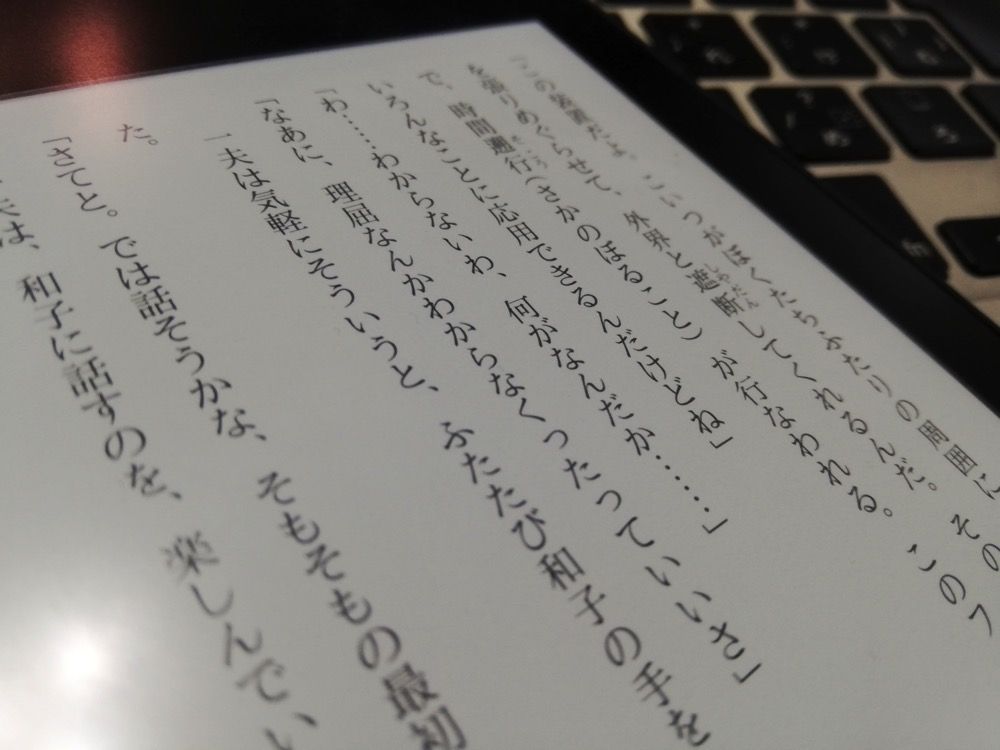 「この装置だよ。こいつがぼくたちふたりの周囲に
を張りめぐらせて、外界と遮断してくれるんだ。その
で、時間遡行(さかのぼること)が行なわれる。この
いろんなことに応用できるんだけどね」
「わ……わからないわ、何がなんだか……」
「なあに、理屈なんかわからなくったっていいさ」
一夫は気軽にそういうと、ふたたび和子の手を
た。
「さてと。では話そうかな、そもそもの最初
夫は、和子に話すのを、楽しんでい